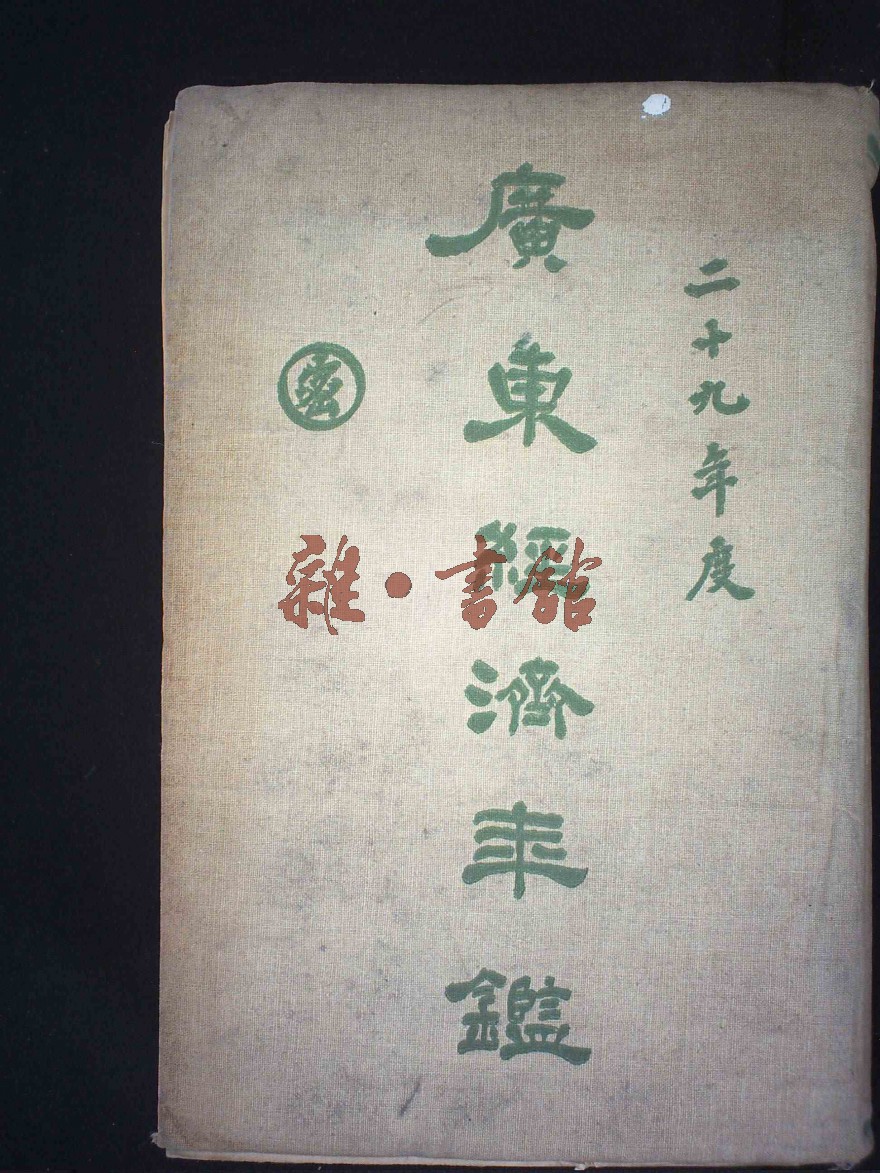 二十九年度
廣東經濟年鑑
密
雜·書館